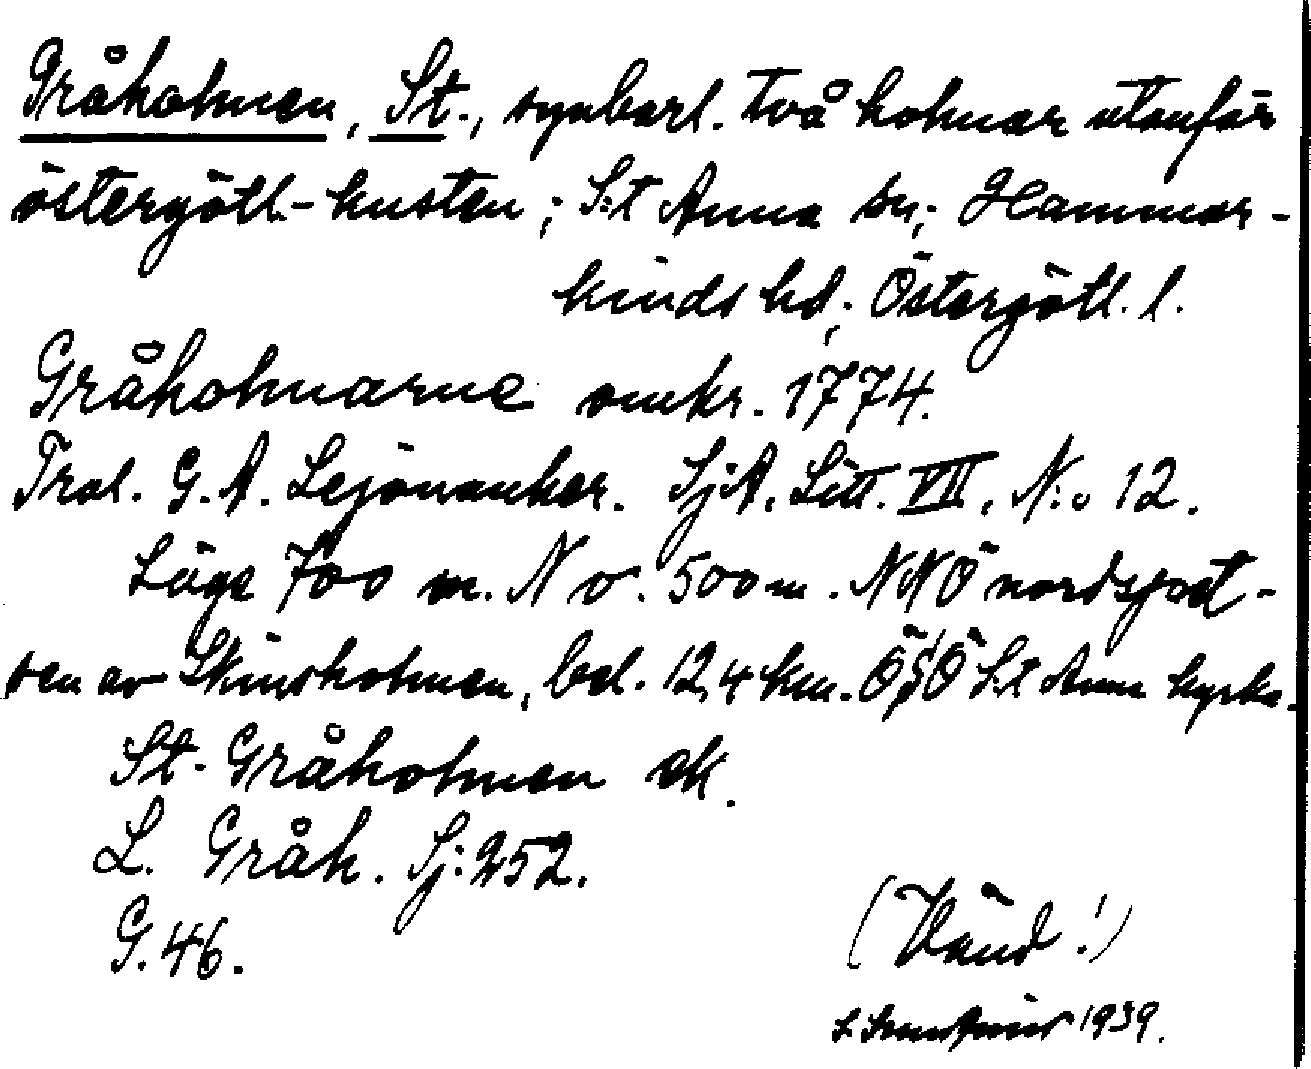 Gråholmen, St., synbarl. två holmar utanför
östergötl.-kusten; S:t Anna sn; Hammar-
kinds hd; Östergötl. l.
Gråholmarne omkr. 1774.
Trol. G. A. Lejonanker. SjA. Litt. VII, N:o 12.
Läge 700 m. N o. 500 m. NNÖ nordspet-
sen av Skinsholmen, bel. 12,4 km. ÖSÖ S:t Anna kyrka.
St. Gråholmen ek.
L. Gråh. Sj: 252.
G. 46.
(Vänd!)
1939.